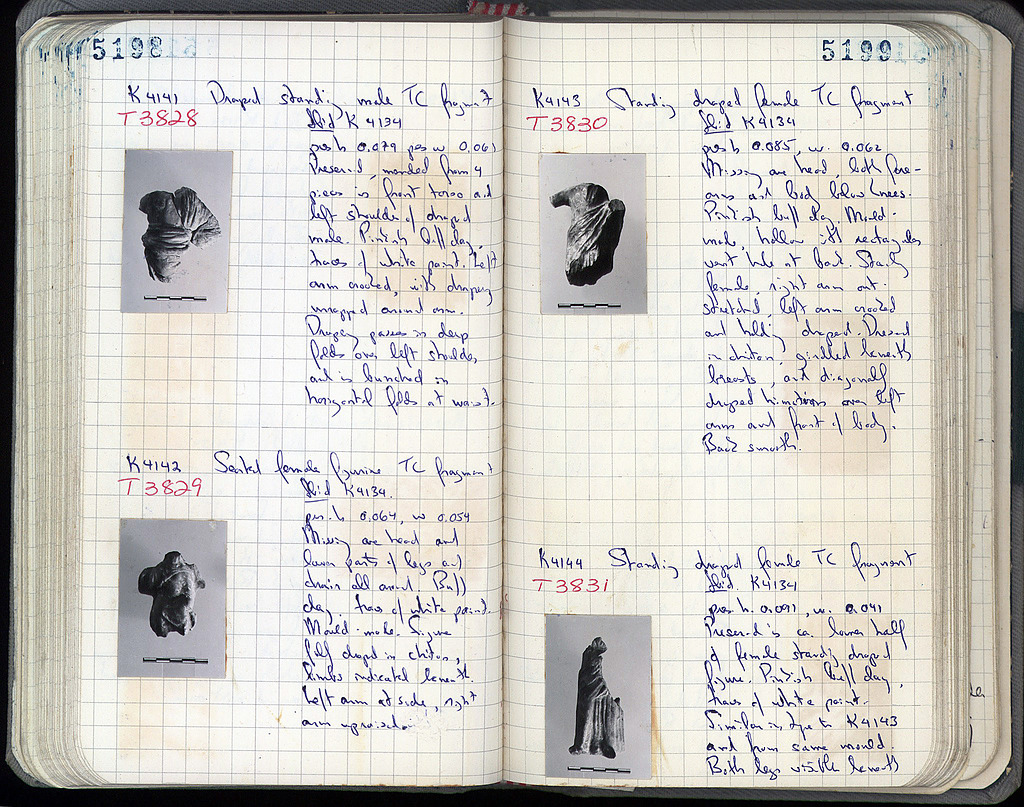 5198
K4141 Draped standing male TC fragment
T3828 Ibid K4134
pres h 0.079 pres w 0.061
Preserved, mended from 4
pieces is front torso and
left shoulder of draped
male. Pinkish buff clay,
traces of white paint. Left
arm crooked, with drapery
wrapped around arm.
Drapery passes in deep
folds over left shoulder,
and is bunched in
horizontal folds at waist.
K4142 Seated female figurine TC fragment
T3829 Ibid K4134.
pres. h 0.064, w 0.054
Missing are head and
lower parts of legs and
chair all around. Buff
clay, traces of white paint.
Mould-made. Figure
fully draped in chiton,
limbs indicated beneath.
Left arm at side, right
arm upraised.
5199
K4143 Standing draped female TC fragment
T3830 Ibid K4134
pres h 0.085, w. 0.062
Missing are head, both fore-
arms and body below knees.
Pinkish buff clay. Mould-
made, hollow with rectangular
vent hole at back. Standing
female, right arm out-
stretched, left arm crooked
and holding draped. Dressed
in chiton, girdled beneath
breasts, and diagonally
draped himation over left
arm and front of body.
Back smooth.
K4144 Standing draped female TC fragment
T3831 Ibid. K4134
pres h. 0.091, w. 0.041
Preserved is ca. lower half
of female standing draped
figure. Pinkish buff clay,
traces of white paint.
Similar in type to K4143
and from same mould.
Both legs visible beneath